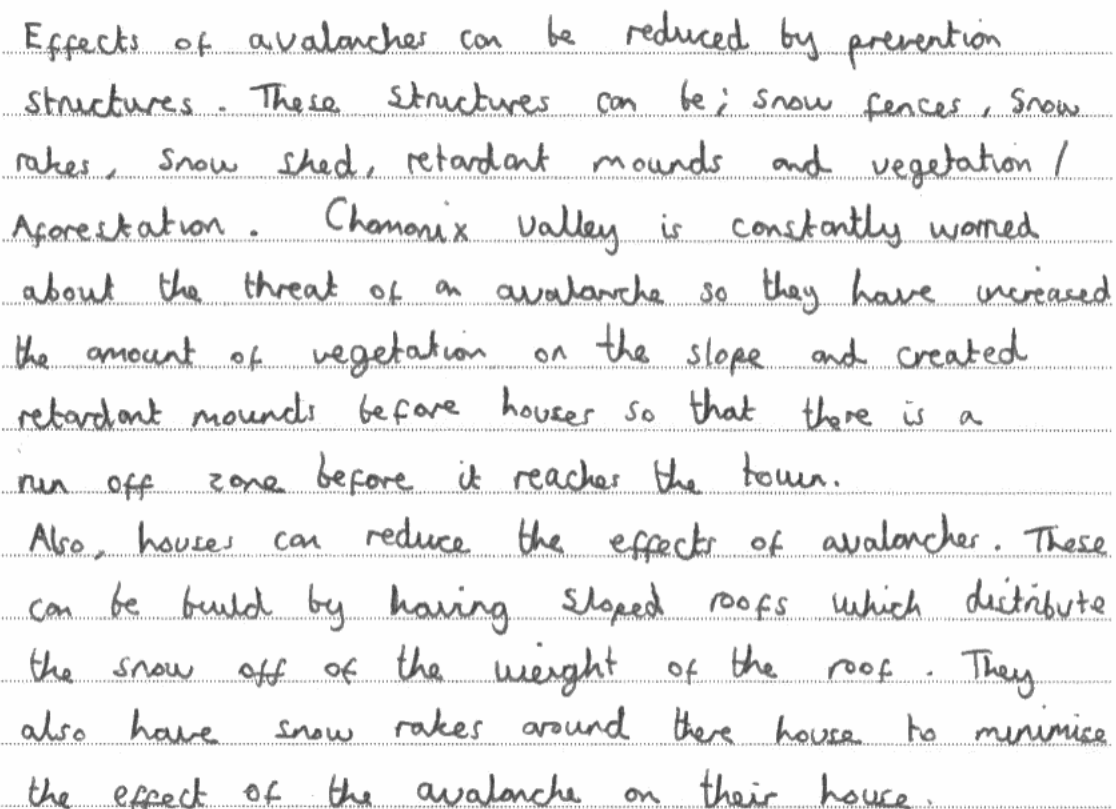 Effects of avalanches can be reduced by prevention
structures. These structures can be; snow fences, snow
rakes, snow shed, retardant mounds and vegetation /
Aforestation. Chamonix valley is constantly worried
about the threat of an avalanche so they have increased
the amount of vegetation on the slope and created
retardant mounds before houses so that there is a
run off zone before it reaches the town.
Also, houses can reduce the effects of avalanches. These
can be build by having sloped roofs which distribute
the snow off of the weight of the roof. They
also have snow rakes around there house to minimise
the effect of the avalanche on their house.